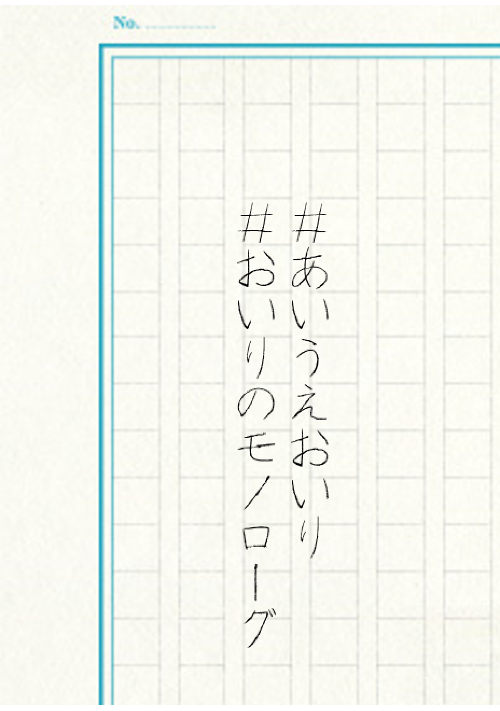 No.
#あいうえおいり
#おいりのモノローグ